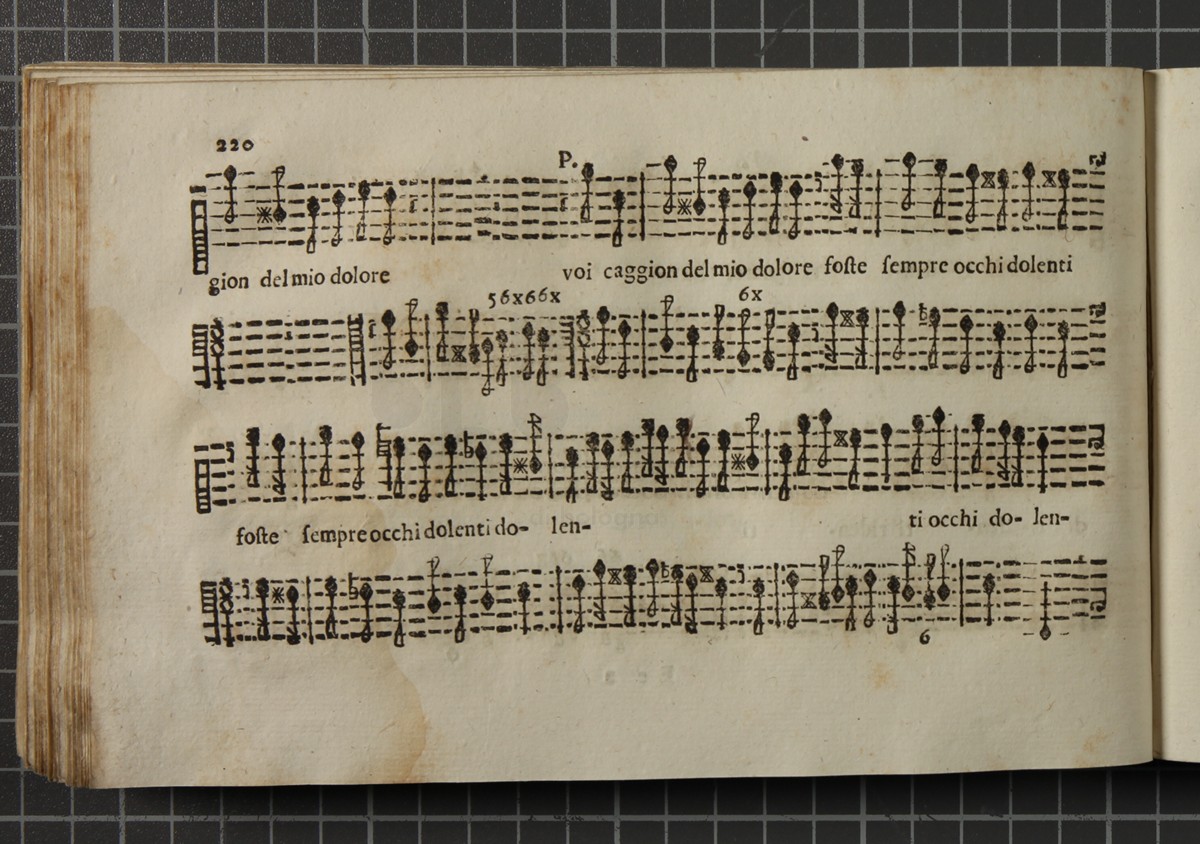 220
P.
gion del mio dolore voi caggion del mio dolore foſte ſempre occhi dolenti
56x66x 6x
foſte ſempre occhi dolenti do- len- ti occhi do- len-
6